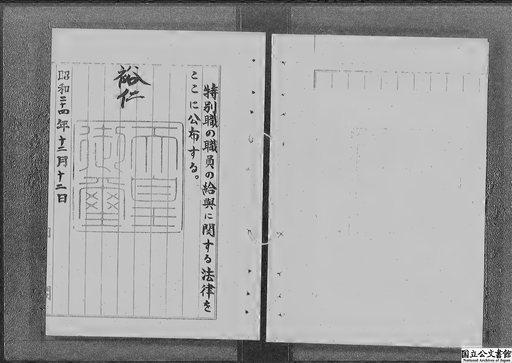 特別職の職員の給與に関する法律を
ここに公布する。
裕仁
天皇
御璽
昭和二十四年十二月十二日
国立公文書館
National Archives of Japan